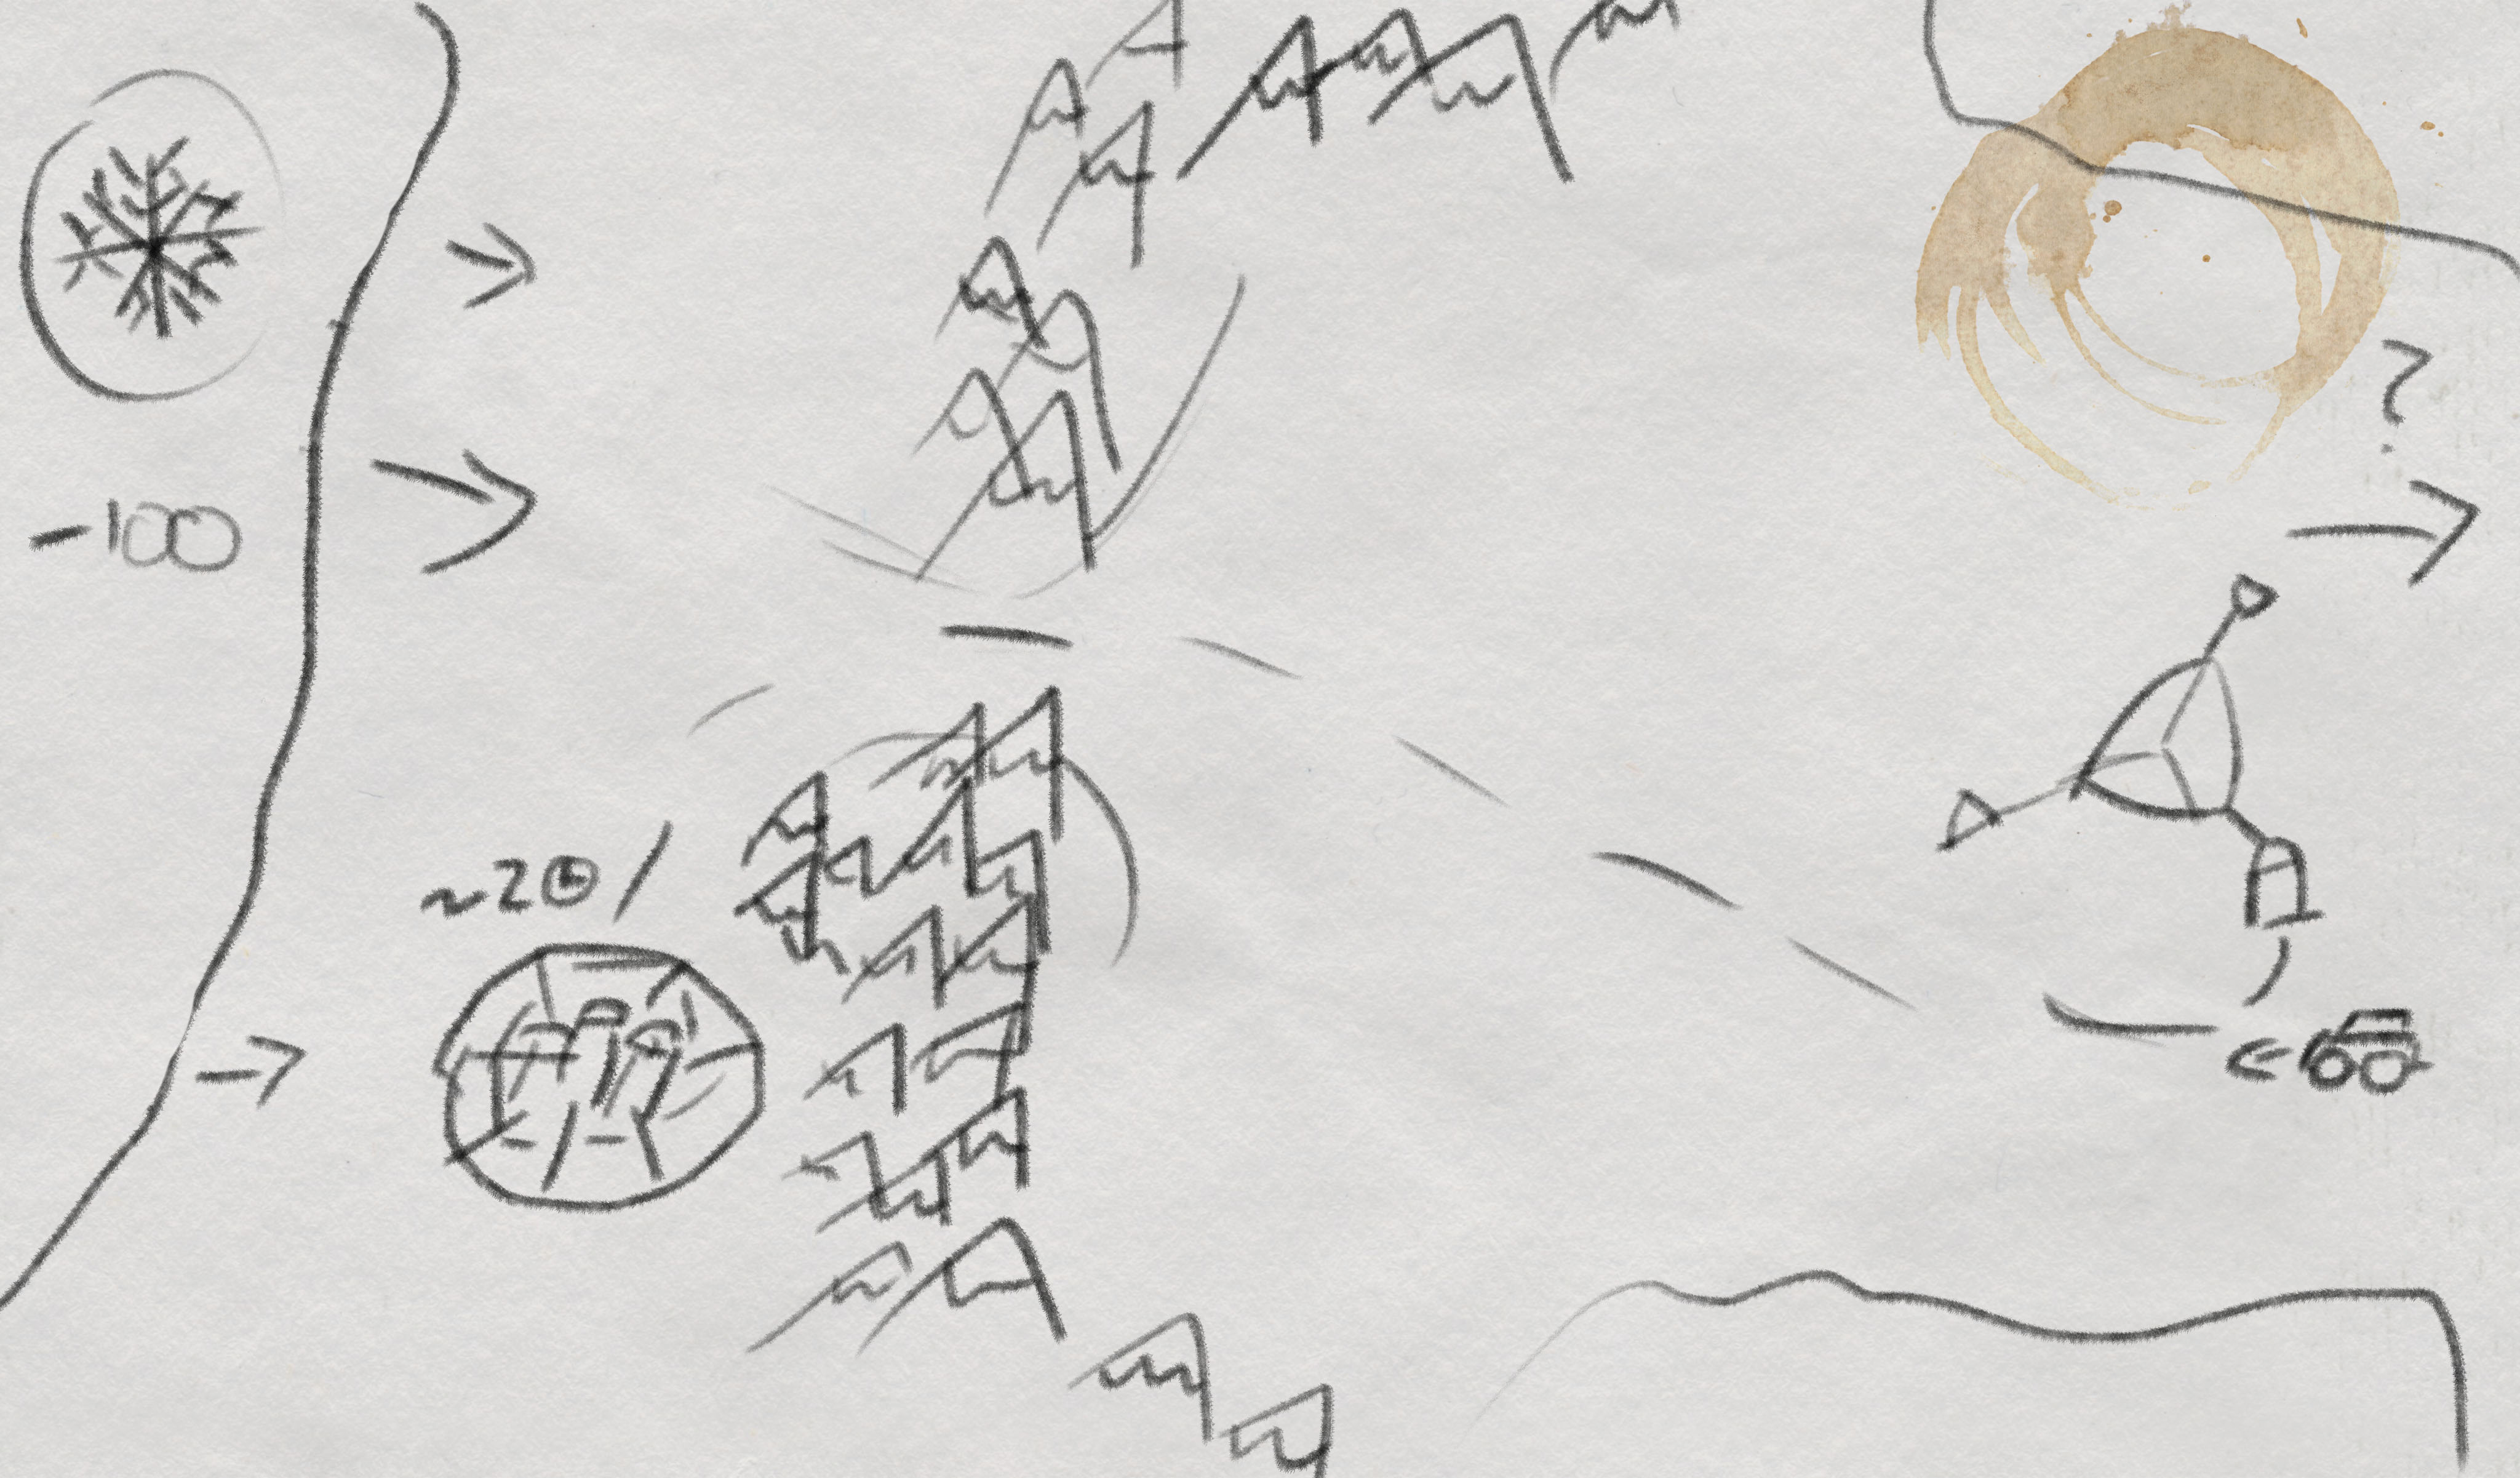 -100
?
~20/